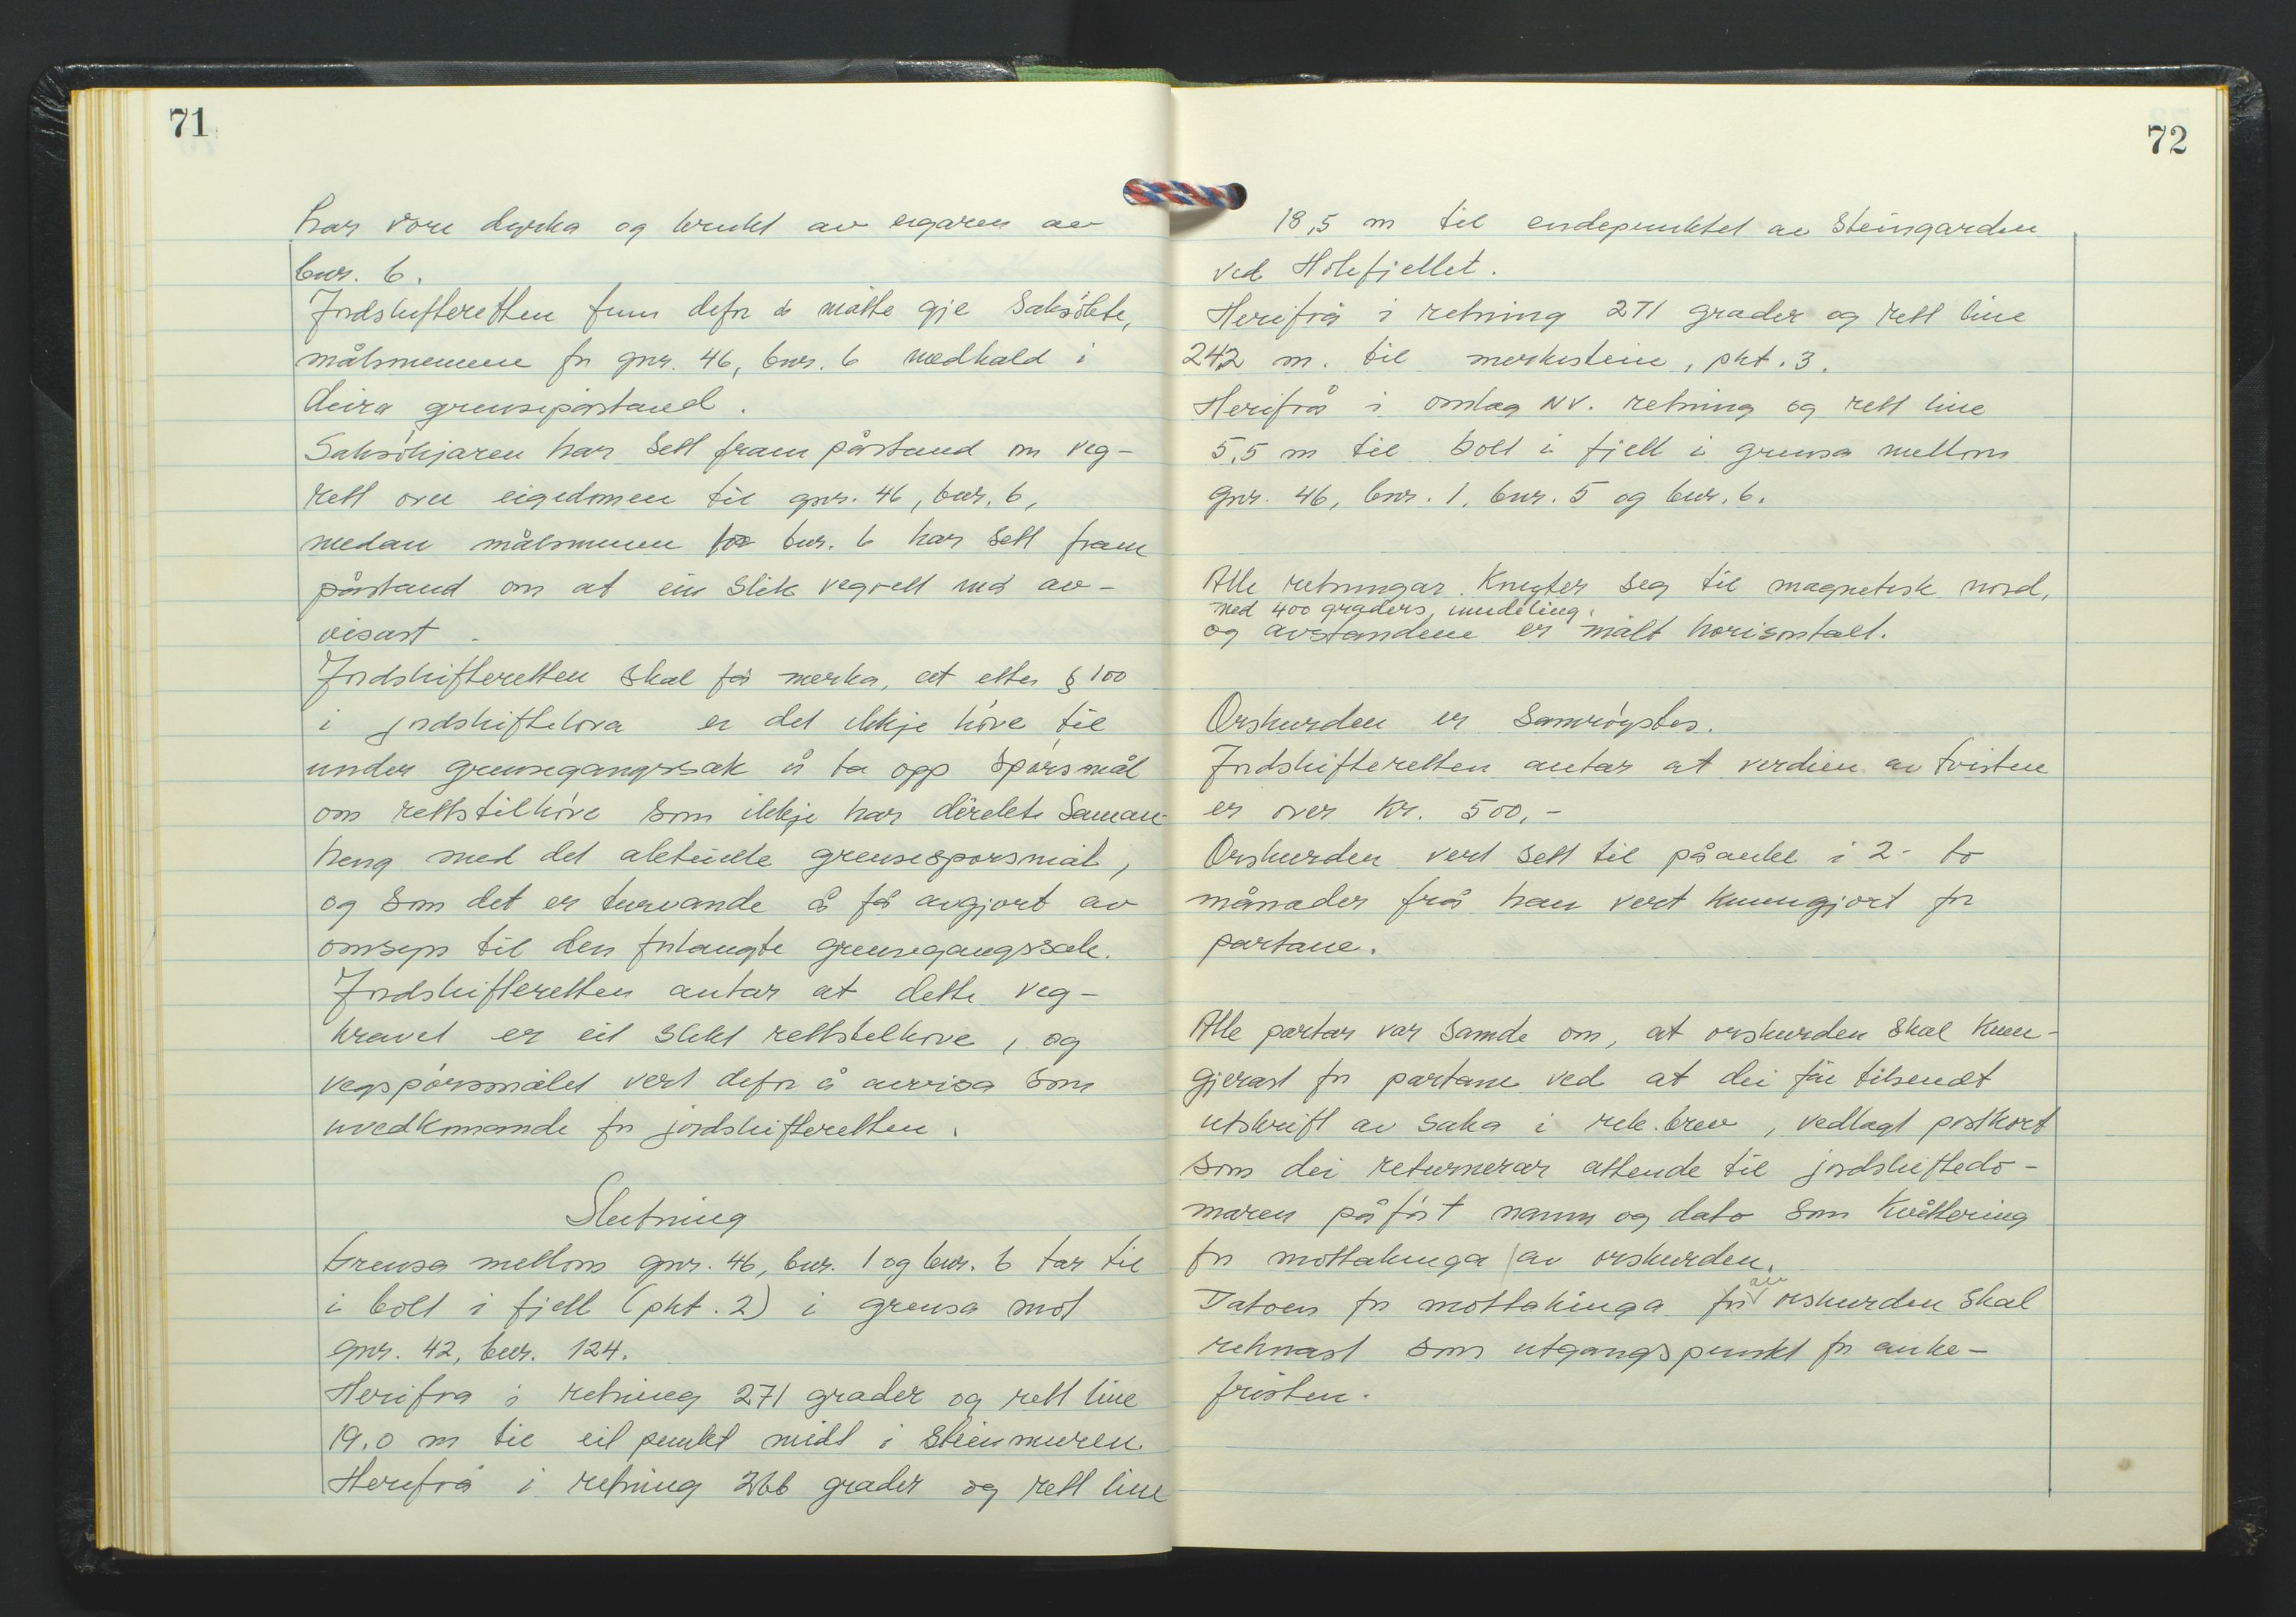 71
har vore dyrka og brukt av eigaren av
bnr. 6.
Jordskifteretten finn difor å måtte gje saksökte,
målsmennene for gnr. 46, bnr. 6 medhald i
deira grensepåstand.
Saksökjaren har sett fram påstand om veg-
rett over eigedomen til gnr. 46, bnr. 6,
medan målsmennene for bnr. 6 har sett fram
påstand om at ein slik vegrett må av-
visast.
Jordskifteretten skal få merka, at etter § 100
i jordskiftelova er det ikkje höve til
under grensegangssak å ta opp spörsmål
om rettstilhöve som ikkje har direkte saman-
heng med det aktuelle grensespörsmål,
og som det er turvande å få avgjort av
omsyn til den forlangte grensegangssak.
Jordskifteretten antar at dette veg-
kravet er eit slikt rettstilhöve, og
vegspörsmålet vert difor å avvisa som
uvedkomande for jordskifteretten.
Slutning
Grensa mellom gnr. 46, bnr. 1 og bnr. 6 tar til
i bolt i fjell (pkt. 2) i grensa mot
gnr. 42, bnr. 124.
Herifra i retning 271 grader og rett line
19.0 m til eit punkt midt i steinmuren.
Herifrå i retning 266 grader og rett line
72
18,5 m til endepunktet av steingarden
ved Holefjellet.
Herifrå i retning 271 grader og rett line
242 m. til merkestein, pkt. 3.
Herifrå i omlag NV. retning og rett line
5,5 m til bolt i fjell i grensa mellom
gnr. 46, bnr. 1, bnr. 5 og bnr. 6.
Alle retningar knyter seg til magnetisk nord,
med 400 graders inndeling.
og avstandene er målt horisontalt.
Orskurden er samröystes.
Jordskifteretten antar at verdien av tvisten
er over kr. 500,-
Orskurden vert sett til påanke i 2- to
månader frå han vert kunngjort for
partane.
Alle partar var samde om, at orskurden skal kunn-
gjerast for partane ved at dei får tilsendt
utskrift av saka i rek. brev, vedlagt postkort
som dei returnerar attende til jordskiftedo-
maren påfört namn og dato som kvittering
for mottakinga av orskurden.
Datoen for mottakinga for av orskurden skal
reknast som utgangspunkt for anke-
fristen.